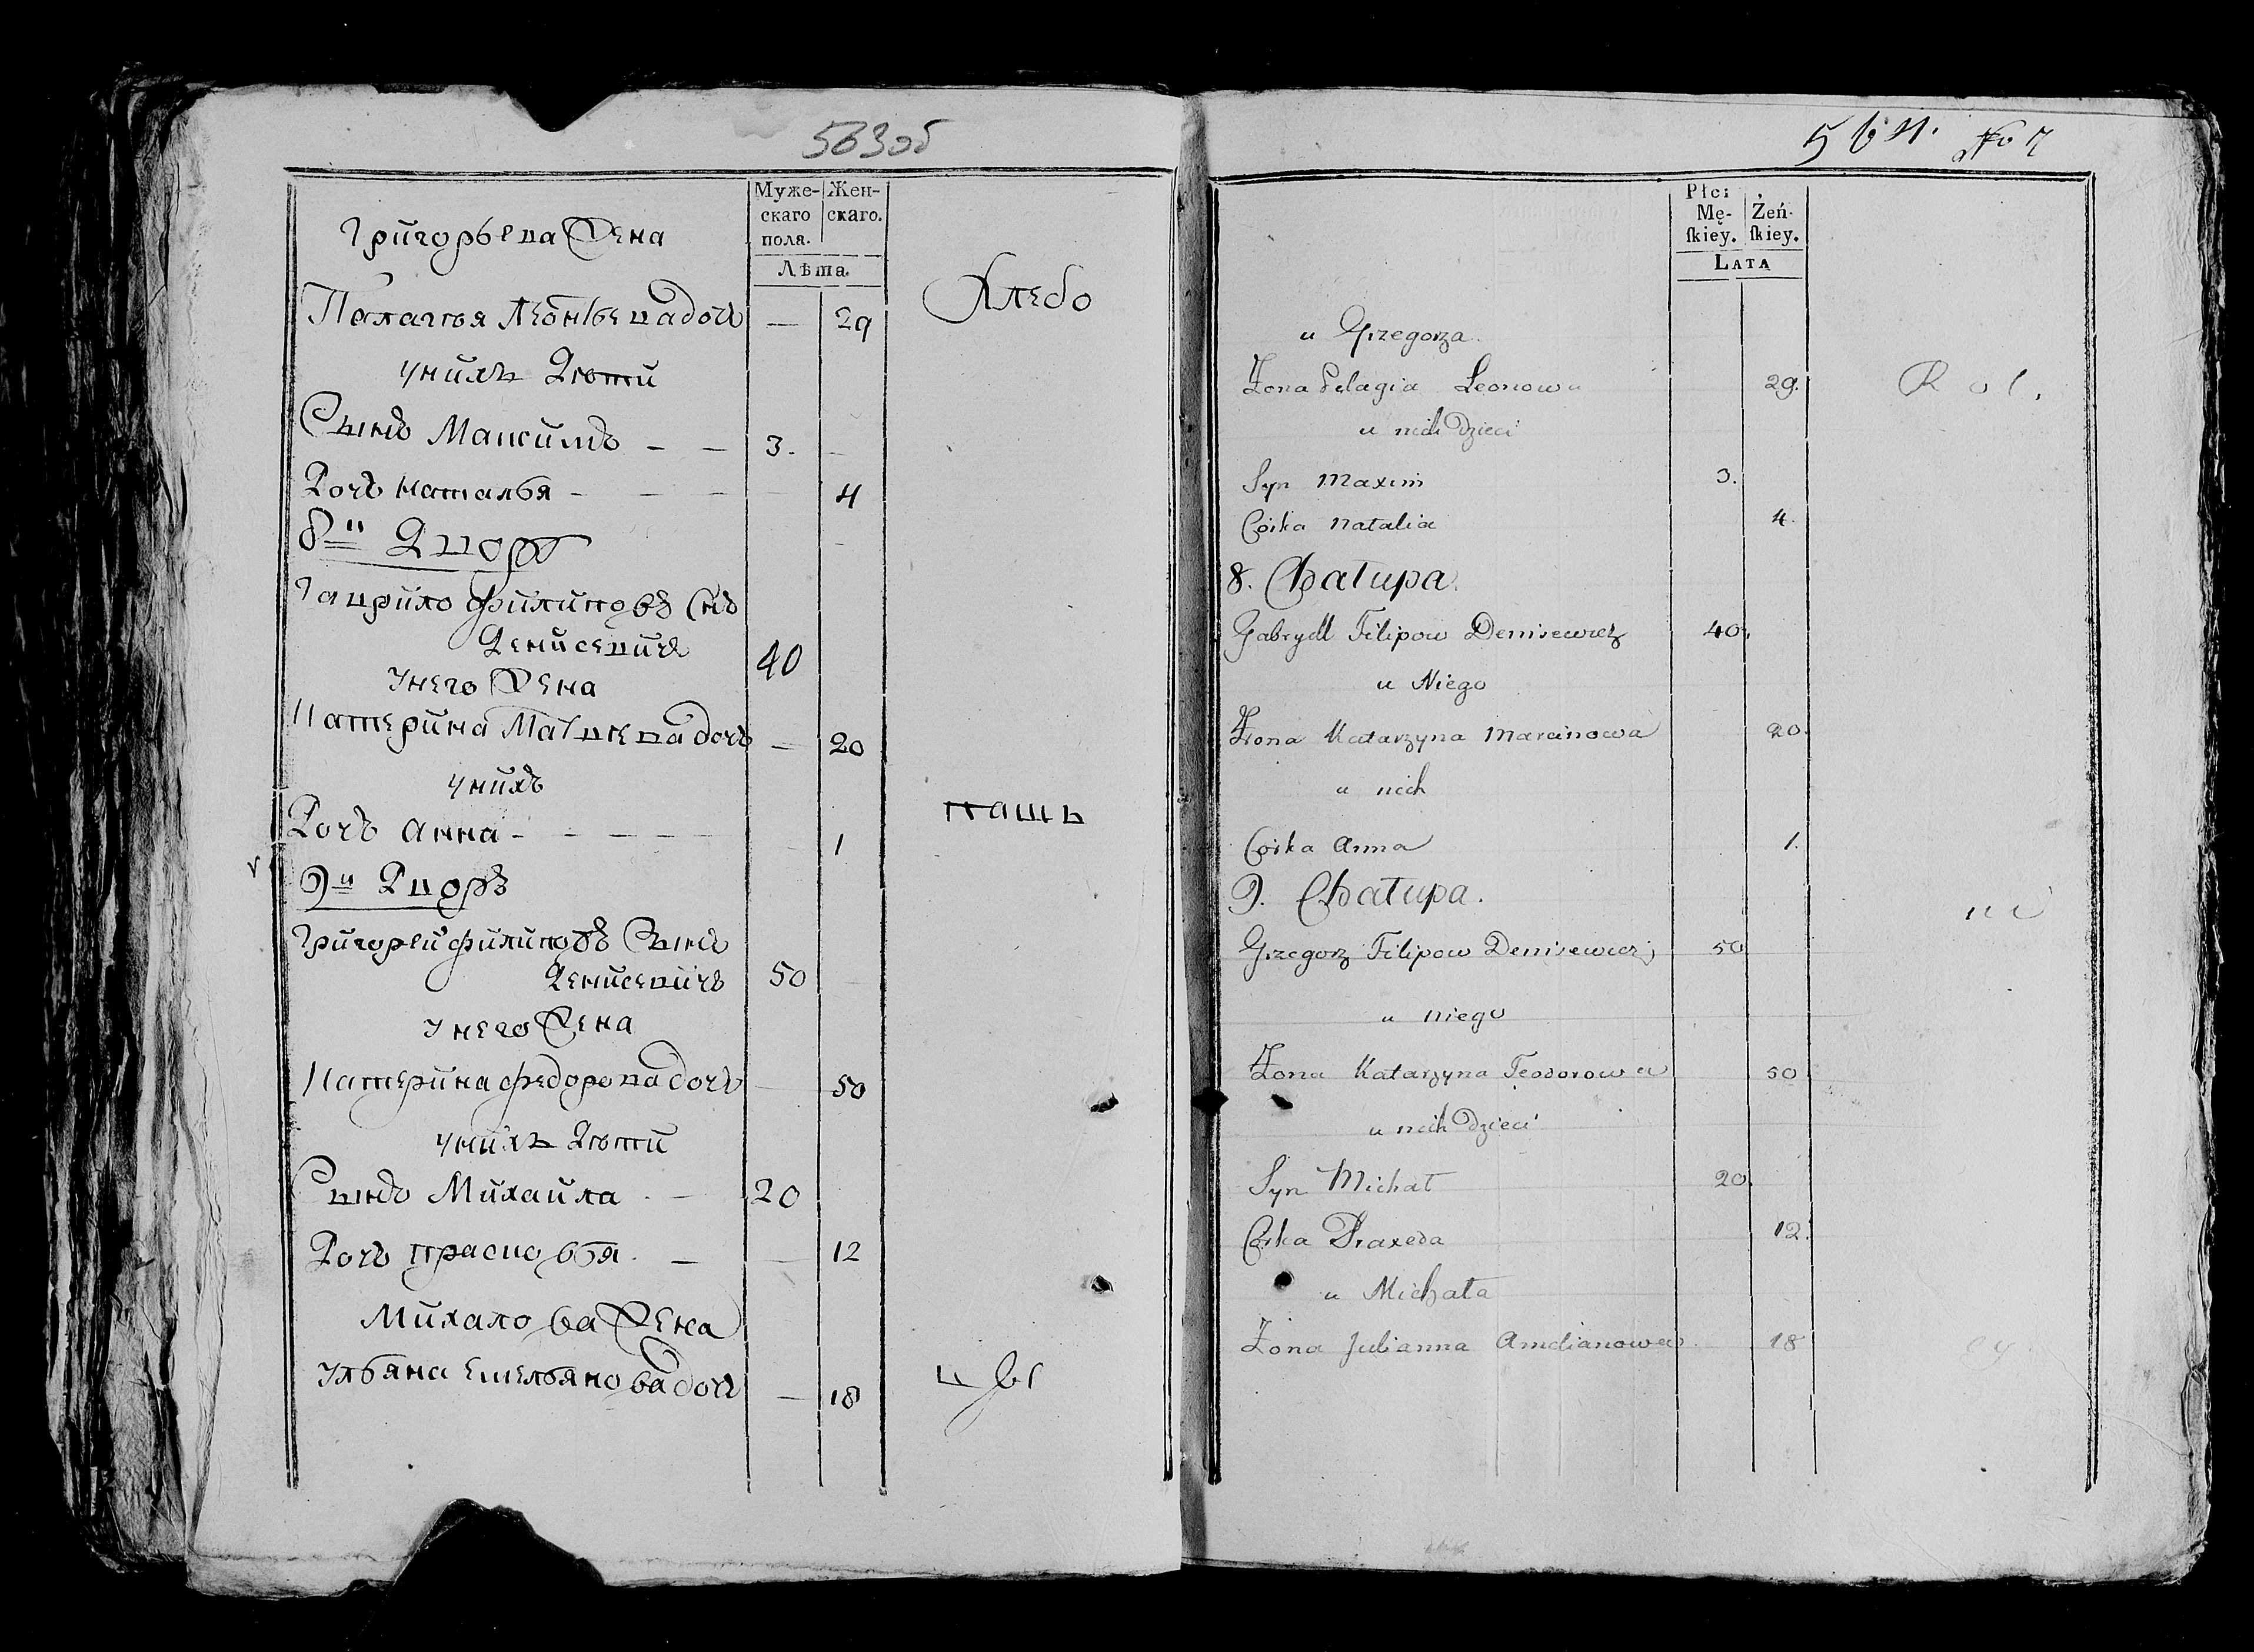 563об
Муже- Жен-
скаго скаго.
пола.
Лѣта.
Григорьева Жена
Палагѣя Леонтьева дочь — 29
Хлебо
у нихъ дѣти
Сынъ Максимъ — — 3.
Дочь наталья — — — 4
8й Дворъ
Гаврило филиповъ Снъ
Денисевичь 40
у него Жена
Катерина дочь — 20
у нихъ
Дочь анна — — — — 1
пашь
9й Дворъ
Григорей филиповъ Сынъ
Денисевичь 50
у него Жена
Катерина федорова дочь — 50
у нихъ дѣти
Сынъ Михайла — 20
Дочь прасковья — — 12
Михалова Жена
Ульяна емельянова дочь — 18
цы
564. No 7
Płci
Mę- Żeń-
ſkiey. ſkiey.
LATA
u Grzegorza.
Żona Pelagia Leonowa 29.
Rol,
u nich Dzieci
Syn Maxim 3.
Corka Natalia 4.
8. Chałupa.
Gabryell Filipow Denisewicz 40.
u Niego
Żona Katarzyna Marcinowa 20.
u nich
Corka Anna 1.
9. Chałupa.
ni
Grzegorz Filipow Denisewicz 50
u niego
Żona Katarzyna Teodorowa 50
u nich Dzieci
Syn Michał 20.
Corka Praxeda 12.
u Michała
Żona Julianna Amelianowa. 18
cy.